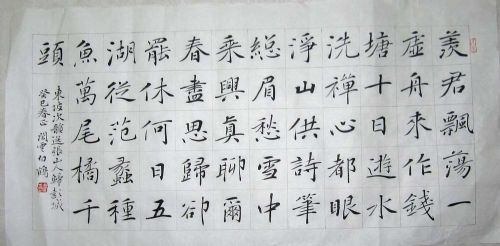 羨君飄蕩一
虛舟來作錢
塘十日遊水
洗禪心都眼
淨山供詩筆
総眉愁雪中
乘興真聊爾
春盡思歸卻
罷休何日五
湖從范蠡種
魚萬尾橘千
頭
東坡次韻送張山人歸彭城
癸巳春正